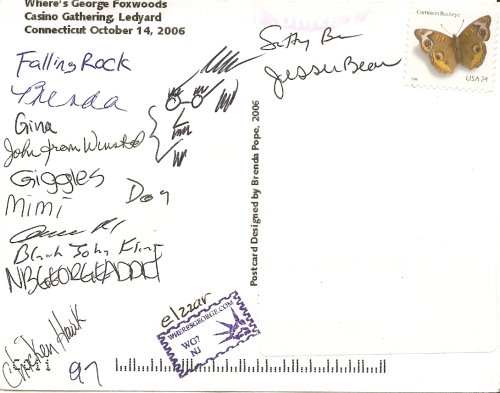 Where's George Foxwoods
Casino Gathering, Ledyard
Connecticut October 14, 2006
FallingRock
Brenda
Gina
John from Winsted
Giggles
Mimi
Dog
Black John
NBGEORGEADDICT
Chicken Hawk
97
elzzar
WHERESGEORGE.COM
WG?
NJ
Postcard Designed by Brenda Pope, 2006
Jesse Bear
Common Buckeye
USA 24